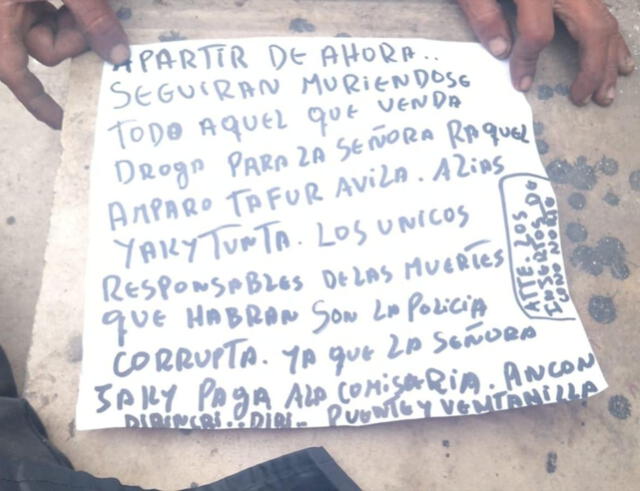 APARTIR DE AHORA..
SEGUIRAN MURIENDOSE
TODO AQUEL QUE VENDA
DROGA PARA LA SEÑORA RAQUEL
AMPARO TAFUR AVILA. ALIAS
YAKY TUNTA. LOS UNICOS
RESPONSABLES DE LAS MUERTES
QUE HABRAN SON LA POLICIA
CORRUPTA. YA QUE LA SEÑORA
JAKY PAGA ALA COMISARIA. ANCON
DIRINCRI.. DIRI.. PUENTE Y VENTANILLA
ATTE: LOS
INSERTOS DE
CONO NORTE